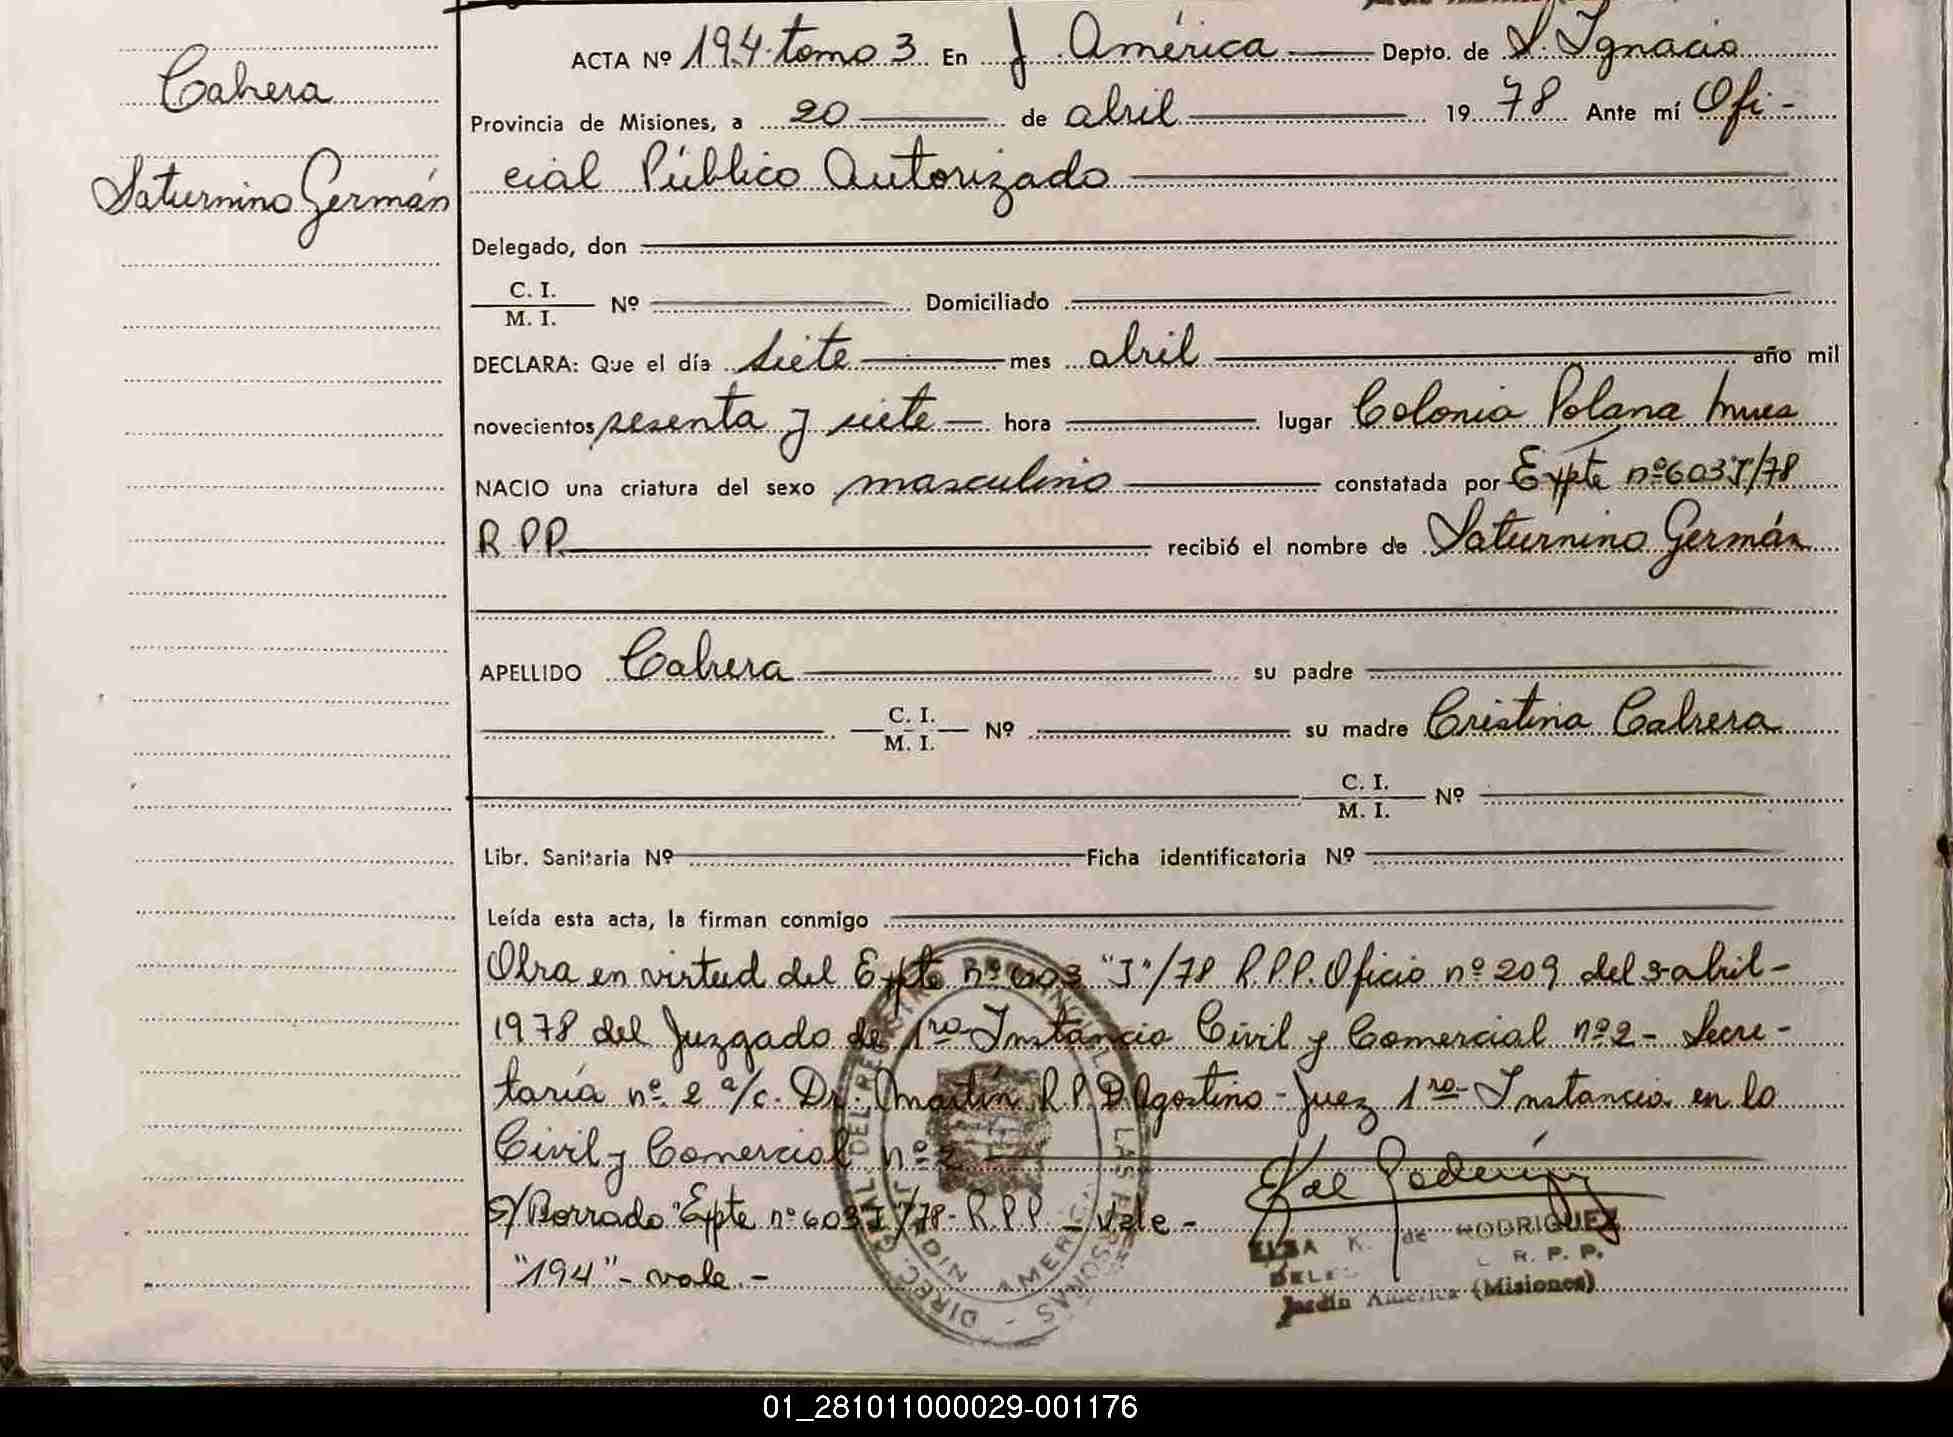 Cabrera
Saturnino Germán
ACTA Nº 194 tomo 3 En J. América Depto. de S. Ignacio
Provincia de Misiones, a 20 de abril 19 78 Ante mí Ofi-
cial Público Autorizado
Delegado, don
C. I.
M. I. Nº Domiciliado
DECLARA: Que el día siete mes abril año mil
novecientos sesenta y siete hora lugar Colonia Polana
NACIO una criatura del sexo masculino constatada por Expte nº 603 "J"/78
R.P.P. recibió el nombre de Saturnino Germán
APELLIDO Cabrera su padre
C. I.
M. I. Nº su madre Cristina Cabrera
C. I.
M. I. Nº
Libr. Sanitaria Nº Ficha identificatoria Nº
Leída esta acta, la firman conmigo
Obra en virtud del Expte nº 603 "J"/78 R.P.P. Oficio nº 209 del 3-abril-
1978 del Juzgado de 1ra Instancia Civil y Comercial nº 2 - Secre-
taría nº 2 a/c. Dr. Martín R.P. D'Agostino - Juez 1ra Instancia en lo
Civil y Comercial nº 2
S/Borrado "Expte nº 603 J/78 - R.P.P. - vale -
"194" - vale -
ELSA K. de RODRIGUEZ
R. P. P.
Jardín América (Misiones)
DIREC. GRAL DEL REGISTRO PROVINCIAL LAS PERSONAS
JARDIN AMERICA
01_281011000029-001176